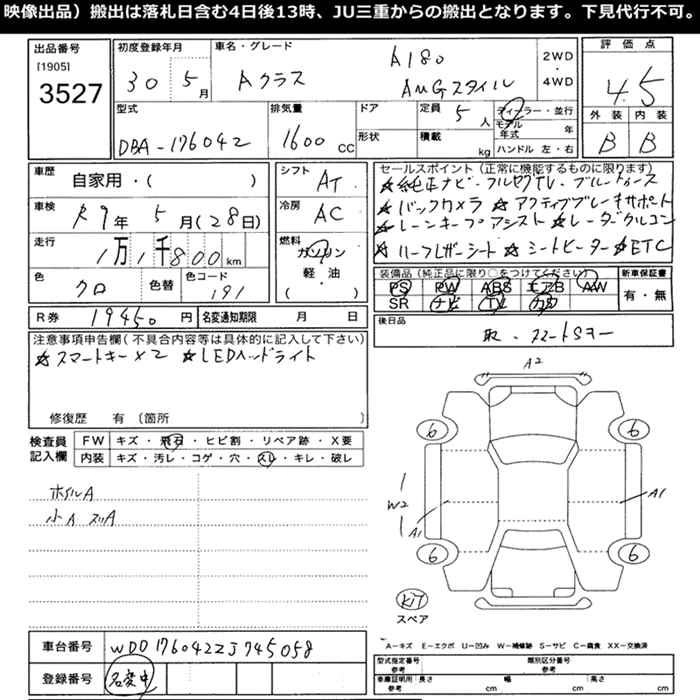 映像出品）搬出は落札日含む4日後13時、JU三重からの搬出となります。下見代行不可。
出品番号
[1905]
3527
初度登録年月
30 5月
車名・グレード
Aクラス
A180
AMGスタイル
2WD
・
4WD
評価点
4.5
外装 内装
B B
型式
DBA-176042
排気量
1600 CC
ドア
形状
定員 5 人
積載 kg
ディーラー・並行
モデル
年式 年
ハンドル 左・右
車歴
自家用・( )
車検
R9年 5月(28日)
走行
1万1千800km
色
クロ
色替
色コード
191
シフト
AT
冷房
AC
燃料
ガソリン
軽・油
( ・ )
セールスポイント(正常に機能するものに限ります)
★純正ナビ・フルセグTV・ブルートゥース
★バックカメラ ★アクティブブレーキサポート
★レーンキープアシスト ★レーダークルコン
★ハーフレザーシート ★シートヒーター ★ETC
装備品(純正品に限り○をつけてください)
PS PW ABS エアB AW
SR ナビ TV カワ
新車保証書
有・無
後日品
取・スマートSキー
R券 19450円
名変通知期限 月 日
注意事項申告欄(不具合内容等は具体的に記入して下さい)
★スマートキー×2 ★LEDヘッドライト
修復歴 有(箇所 )
検査員
記入欄
FW キズ・飛石・ヒビ割・リペア跡・X要
内装 キズ・汚レ・コゲ・穴・スレ・キレ・破レ
ホイルA
小A スリA
A2
6 6
W2
A1
A1
6 6
KIT
スペア
A—キズ E—エクボ U—凹み W—補修跡 S—サビ C—腐食 XX—交換済
車台番号 WDD1760422J745058
登録番号 名変中
型式指定番号
参考
類別区分番号
参考
車庫証明用
参考
長さ cm
幅 cm
高さ cm